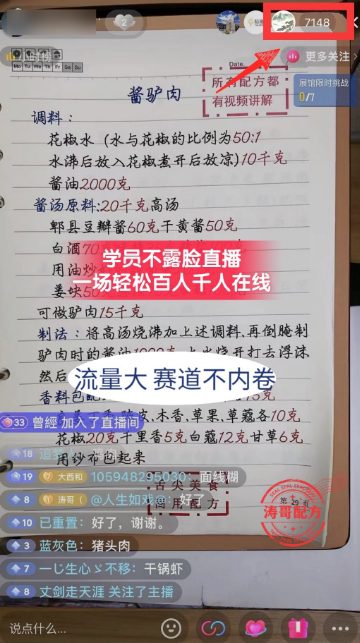 7148
更多关注
展馆限时挑战
0/7
Date
所有配方都
有视频讲解
酱驴肉
调料:
花椒水（水与花椒的比例为50:1
水沸后放入花椒煮开后放凉)10千克
酱油2000克
酱汤原料:20千克高汤
郫县豆瓣酱60克干黄酱50克
白酒
学员不露脸直播
用油炒
一场轻松百人千人在线
姜
可做驴肉15千克
制法:将高汤烧沸加上述调料,再倒腌制
驴肉时的酱油
然后
流量大 赛道不内卷
香料包
33 曾經 加入了直播间
木香、草果、草蔻各10克
花椒20克千里香5克白蔻12克甘草6克
用纱布包起来
18
19 大酉和 105948295030：面线糊
8 涛哥 @人生如戏@：好了
10 已重置：好了，谢谢。
舌尖美食
涛哥配方
3 蓝灰色：猪头肉
8 一じ生心ゞ不移：干锅虾
8 丈剑走天涯 关注了主播
说点什么...